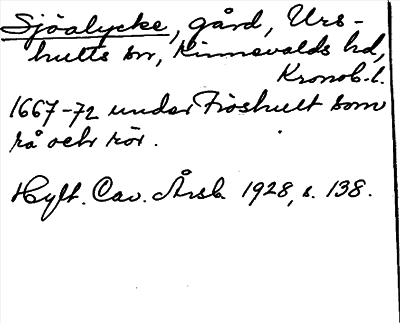 Sjöalycke, gård, Urs-
hults sn, Kinnevalds hd,
Kronob. l.
1667-72 under Fröshult som
rå och rör.
Hylt. Cav. Årsb. 1928, s. 138.